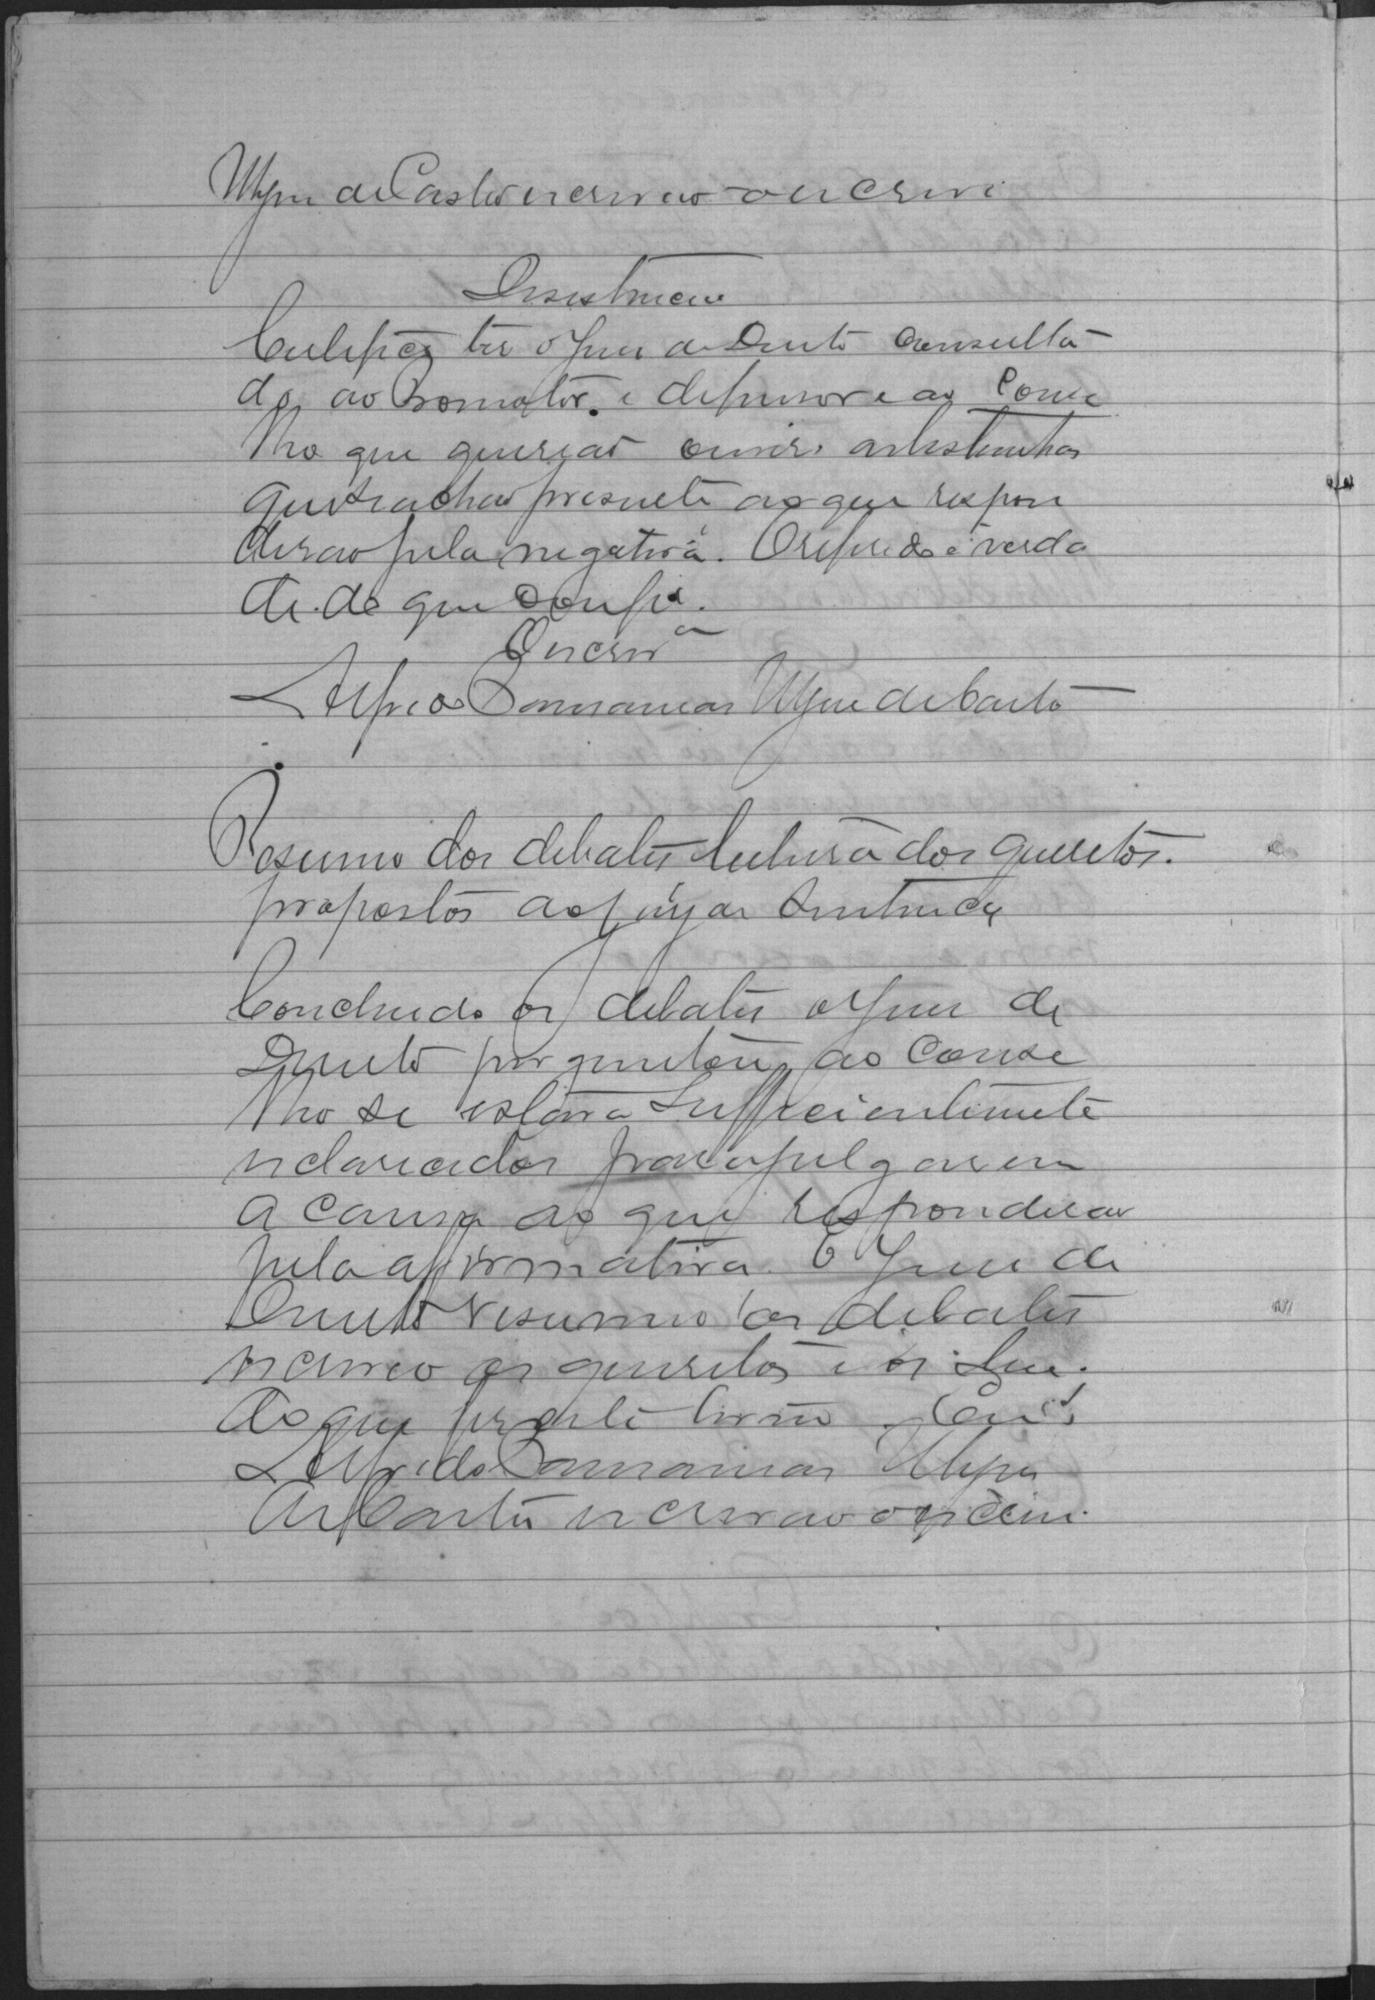 de Castro escrivão o escrevi
Desistencia
Certifico ter o Juiz de Direito consulta
do ao Promotor, e defensor e ao Conse
lho que queriao ouvir as testemunhas
que se achao presente ao que respon
derao pela negativa. O referido é verda
de do que dou fé.
O escrivão
Alfredo de Castro
Resumo dos debates leitura dos quesitos
propostos ao jury e sentença
Concluido os debates o Juiz de
Direito perguntou ao Conse
lho se estava sufficientemente
esclarecidos para julgarem
a causa ao que responderao
pela affirmativa. O Juiz de
Direito resumio os debates
escreveo os quesitos e os leu.
Do que fiz este termo. Eu,
Alfredo
de Castro escrivao o escrevi.